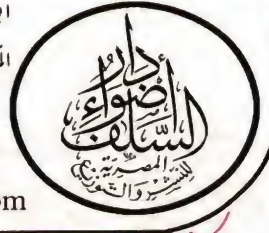 دار
أضواء
السلف
المصرية
للنشر والتوزيع
om